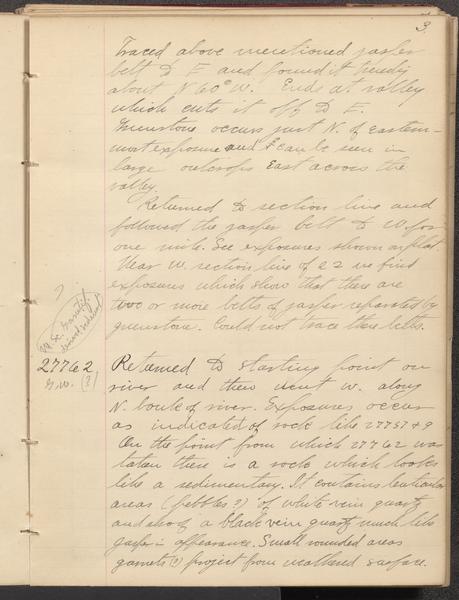 3.
Traced above mentioned jasper
belt to E and found it trends
about N 60° W. Ends at valley
which cuts it off to E.
Greenstone occurs just N. of Eastern-
most exposure and can be seen in
large outcrops East across the
valley.
Returned to section line and
followed the jasper belt to W. for
one mile. See exposures shown on plat.
Near W. section line of 22 we find
exposures which show that there are
two or more belts of jasper separated by
greenstone. Could not trace these belts.
?
27762
(?)
Returned to starting point on
river and then went W. along
N. bank of river. Exposures occur
as indicated of rock like 27757 & 9
On the point from which 27762 was
taken there is a rock which looks
like a sedimentary. It contains lenticular
areas (pebbles?) of white vein quartz
and also of a black vein quartz much like
jasper in appearance. Small rounded areas
garnets (?) project from weathered surface.